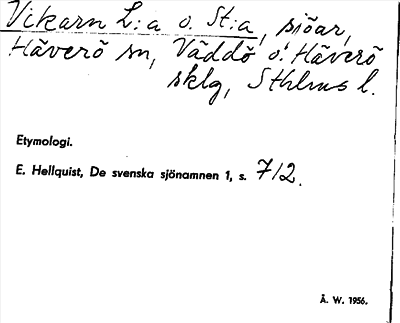 Vikarn L:a o. St:a, sjöar,
Häverö sn, Väddö o. Häverö
sklg, Sthlms l.
Etymologi.
E. Hellquist, De svenska sjönamnen 1, s. 712.
Å. W. 1956.